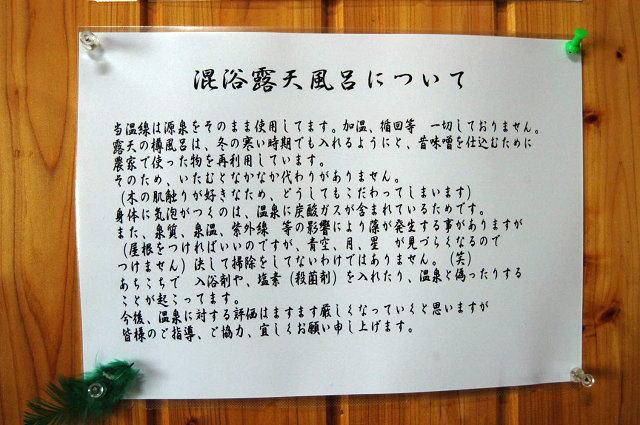 混浴露天風呂について
当温線は源泉をそのまま使用してます。加温、循回等 一切しておりません。
露天の樽風呂は、冬の寒い時期でも入れるようにと、昔味噌を仕込むために
農家で使った物を再利用しています。
そのため、いたむとなかなか代わりがありません。
(木の肌触りが好きなため、どうしてもこだわってしまいます)
身体に気泡がつくのは、温泉に炭酸ガスが含まれているためです。
また、泉質、泉温、紫外線 等の影響により藻が発生する事がありますが
(屋根をつければいいのですが、青空、月、星 が見づらくなるので
つけません)決して掃除をしてないわけではありません。(笑)
あちこちで 入浴剤や、塩素(殺菌剤)を入れたり、温泉と偽ったりする
ことが起こってます。
今後、温泉に対する評価はますます厳しくなっていくと思いますが
皆様のご指導、ご協力、宜しくお願い申し上げます。